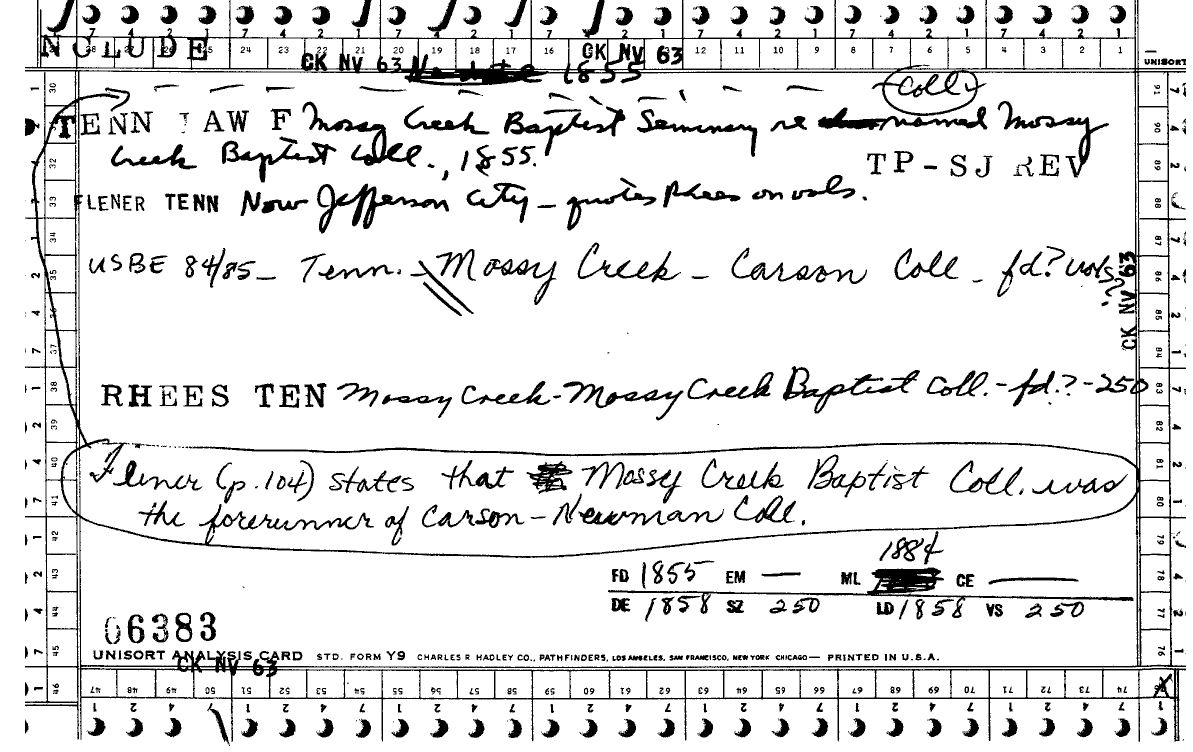 7 4 2 1 7 4 2 1
24 23 22 21 20 19 18 17 16 12 11 10 9 8 7 6 5 4 3 2 1
INCLUDE
CK NV 63 No date 1855 CK NV 63
UNISORT
Coll
TENN LAW F Mossy Creek Baptist Seminary re named Mossy
Creek Baptist Coll., 1855.
TP-SJ REV
FLENER TENN Now Jefferson City – quotes Rhees on vols.
USBE 84/85 – Tenn. – Mossy Creek – Carson Coll – fd? vols?
CK NV 63
RHEES TEN Mossy Creek-Mossy Creek Baptist Coll.-fd?-250
Flener (p.104) states that Mossy Creek Baptist Coll. was
the forerunner of Carson-Newman Coll.
1884
FD 1855 EM — ML CE —
DE 1858 SZ 250 LD 1858 VS 250
06383
UNISORT ANALYSIS CARD STD. FORM Y9 CHARLES R HADLEY CO., PATHFINDERS, LOS ANGELES, SAN FRANCISCO, NEW YORK CHICAGO — PRINTED IN U.S.A.
CK NV 63
47 48 49 50 51 52 53 54 55 56 57 58 59 60 61 62 63 64 65 66 67 68 69 70 71 72 73 74